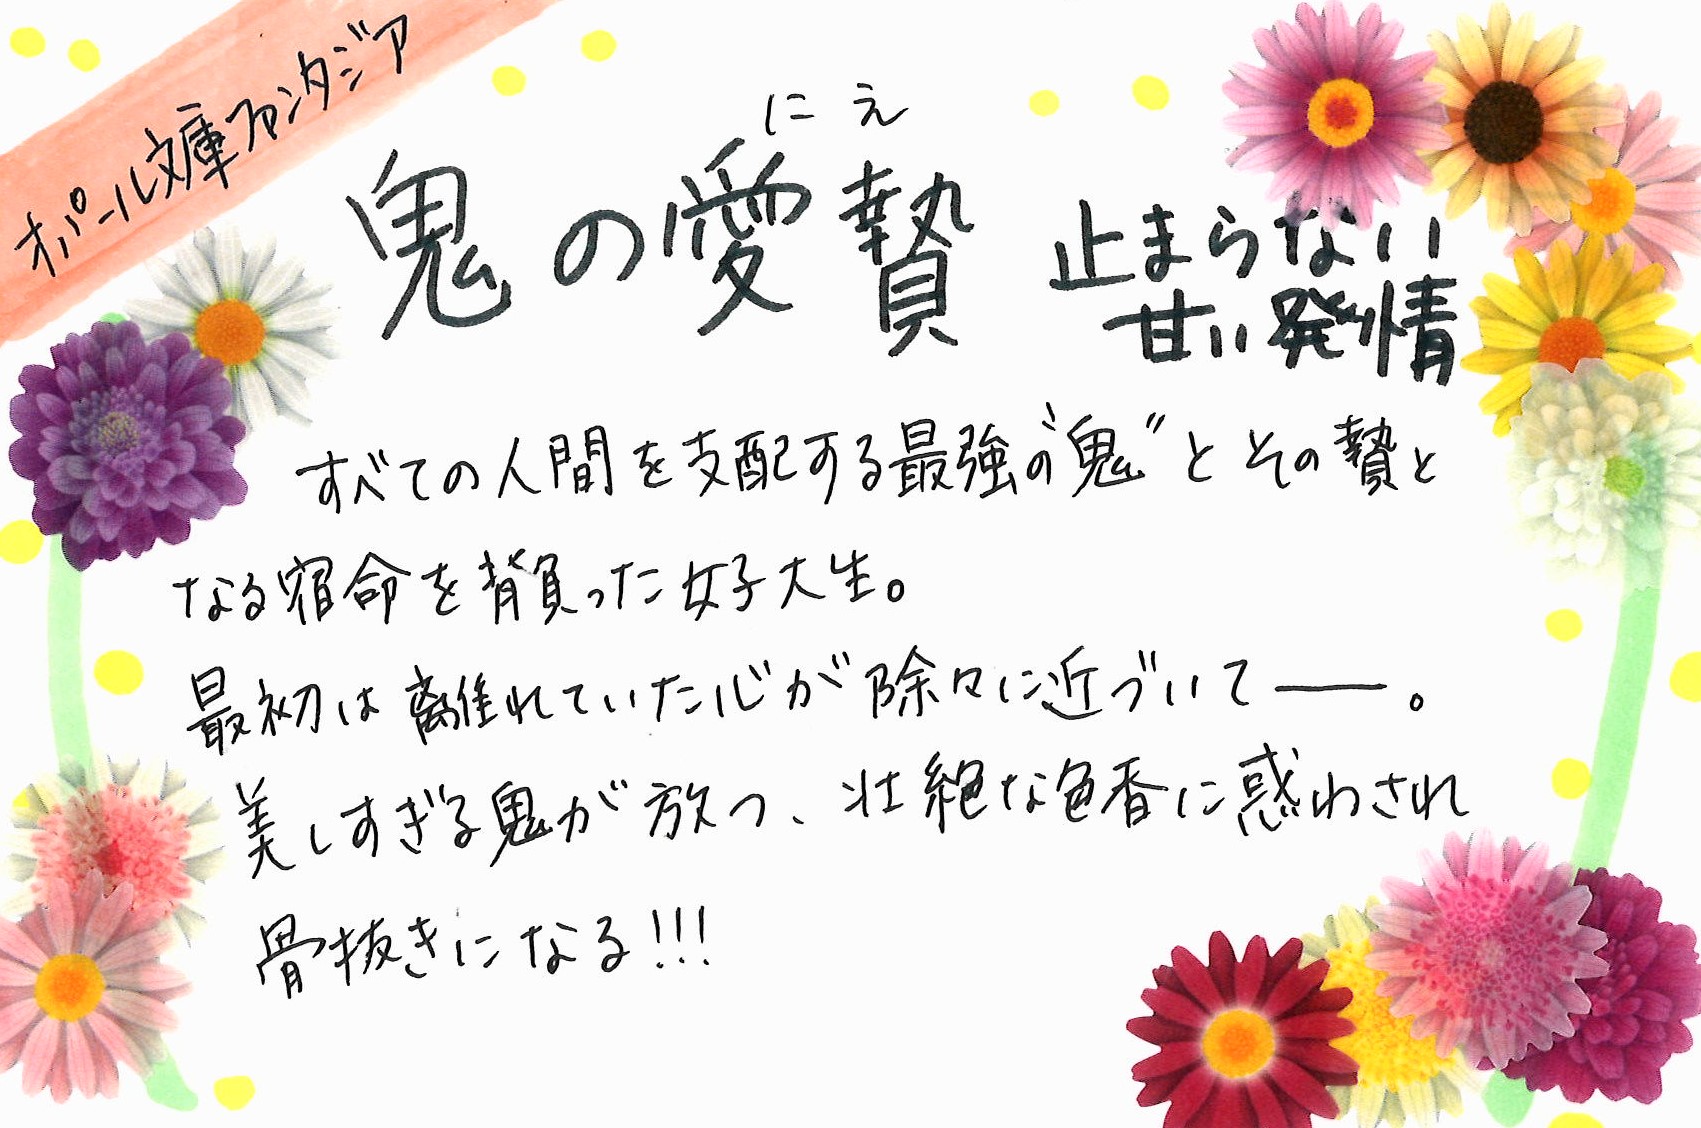 オパール文庫ファンタジア
にえ
鬼の愛贄 止まらない
甘い発情
すべての人間を支配する最強の“鬼”とその贄と
なる宿命を背負った女子大生。
最初は離れていた心が除々に近づいて――。
美しすぎる鬼が放つ、壮絶な色香に惑わされ
骨抜きになる!!!